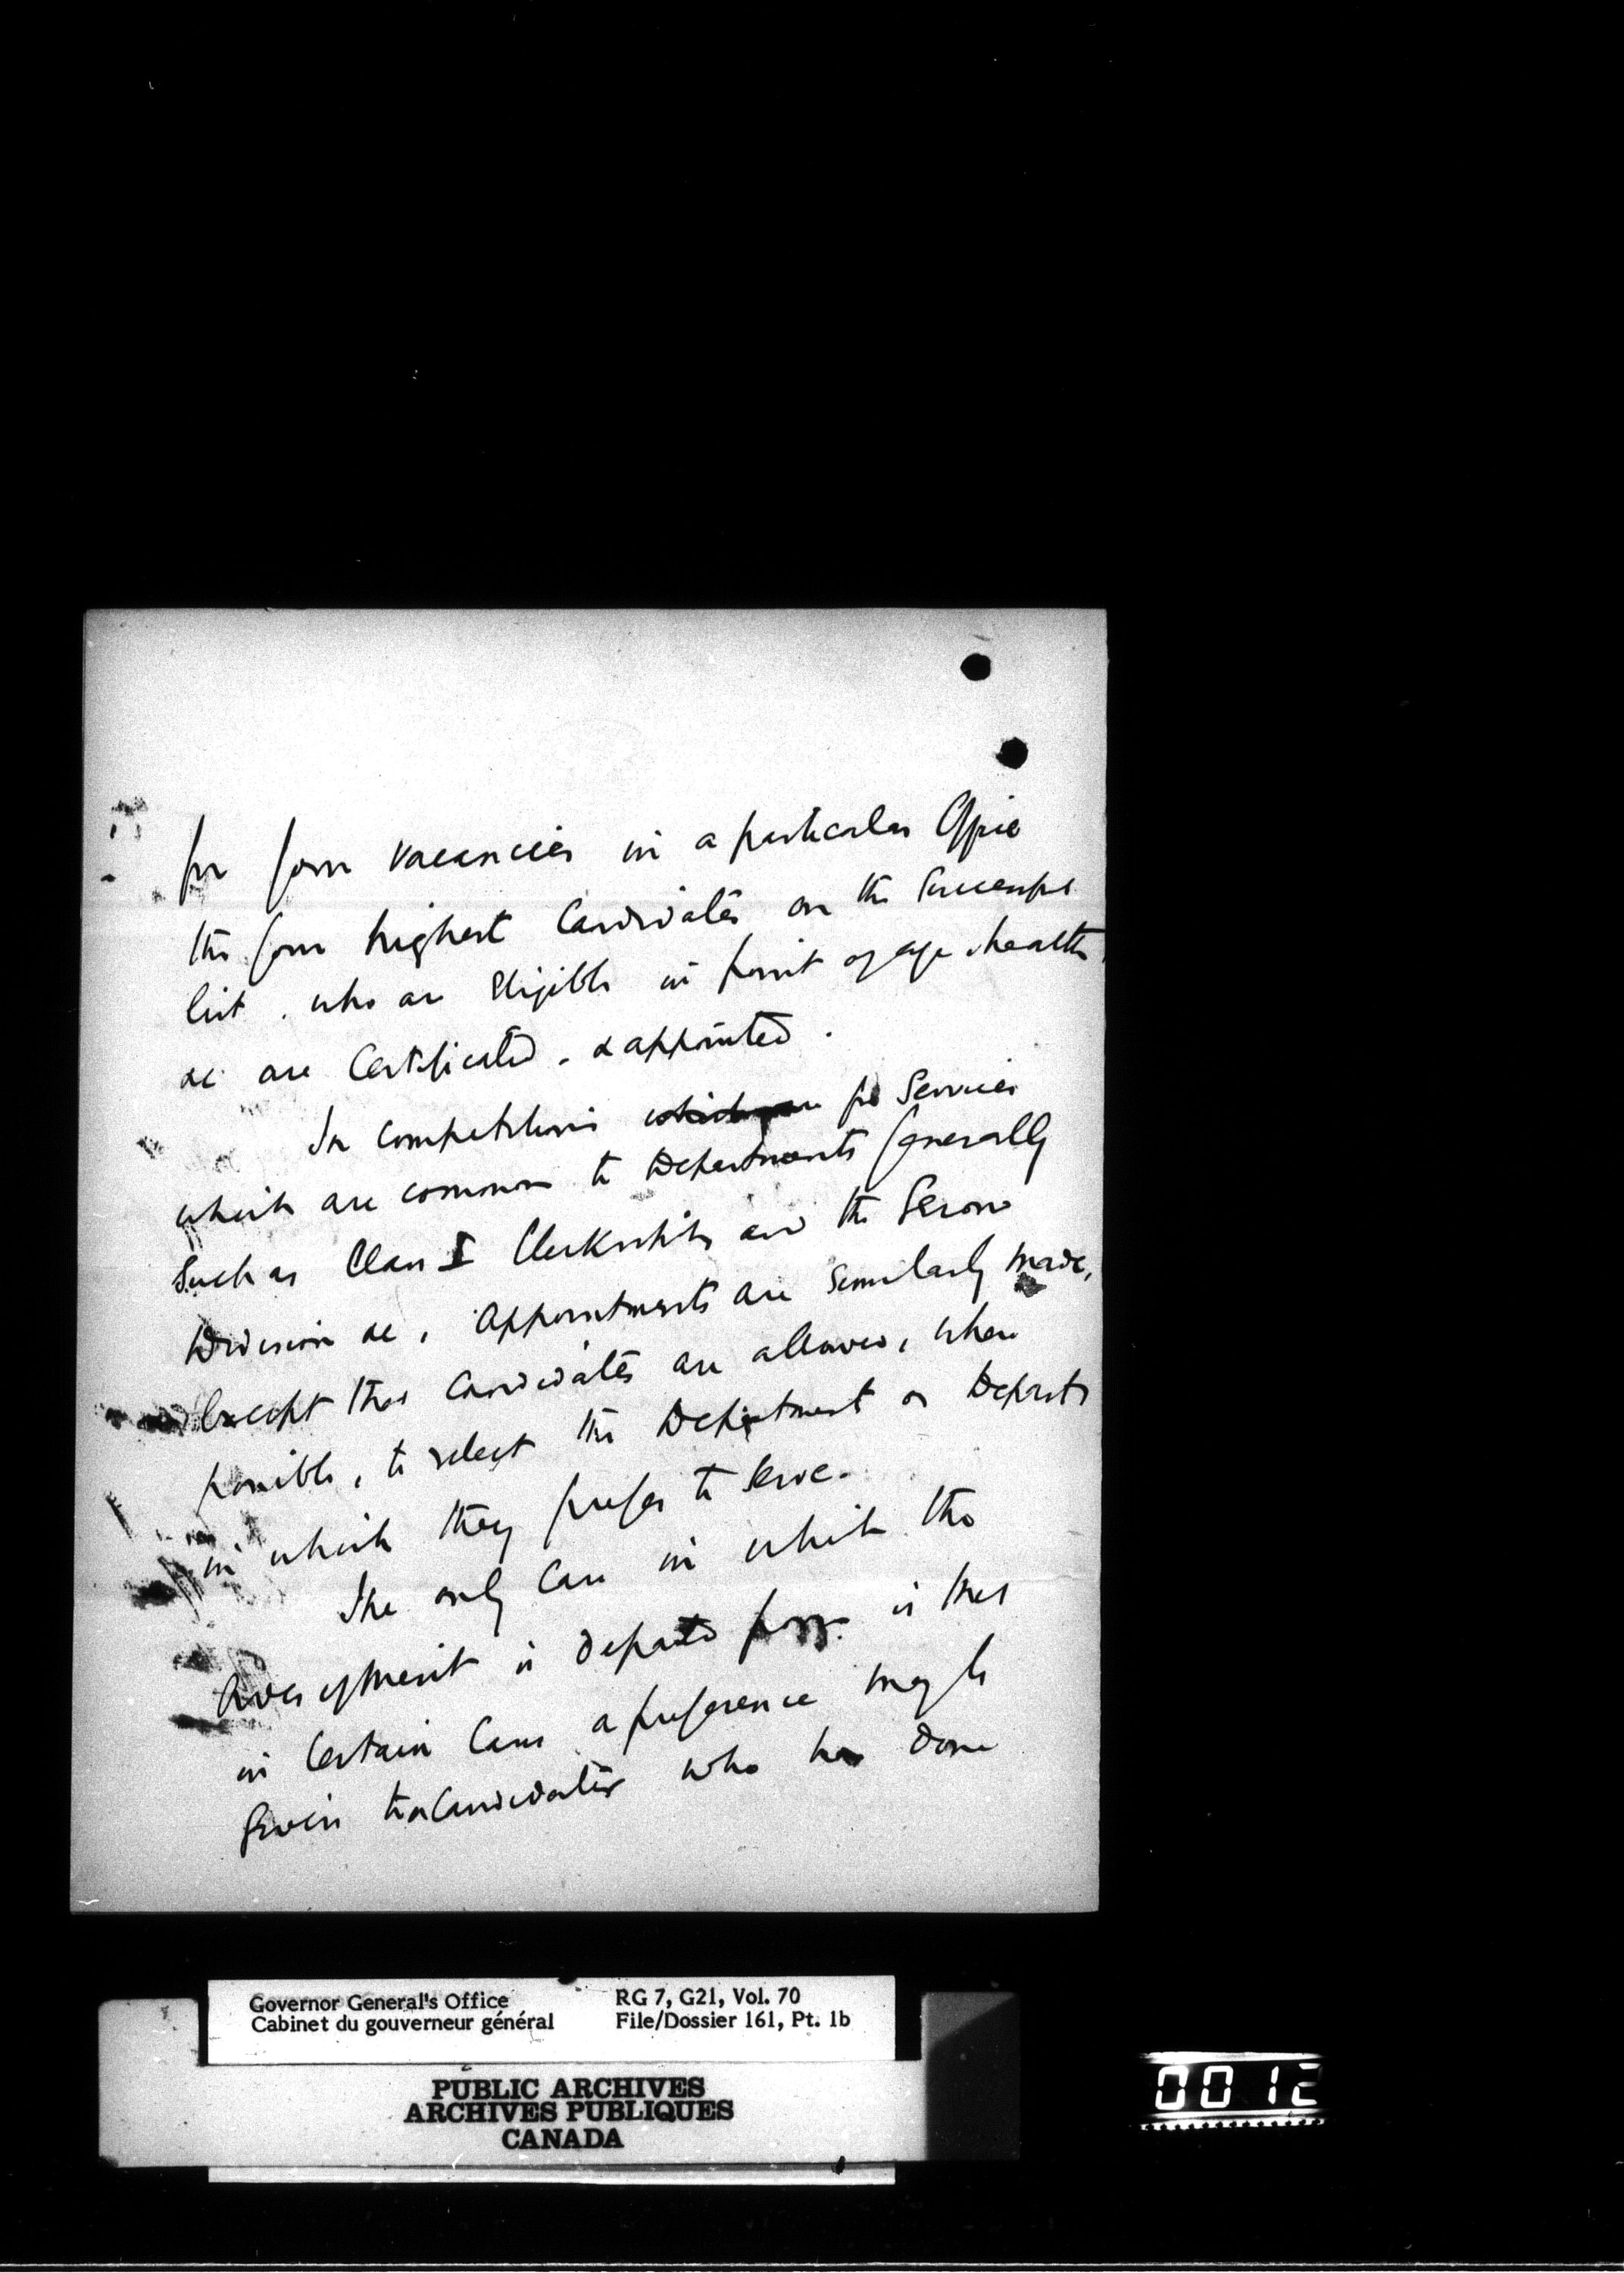 for four vacancies in a particular Office
the four highest Candidates on the Successful
list. who are Eligible in point of age & health
&c are Certificated. & appointed.
In competitions which are for Services
which are common to Departments generally
Such as Class I Clerkships and the Second
Division &c, Appointments are similarly made,
Except that Candidates are allowed, when
possible, to select the Department or Departs
in which they prefer to serve.
The only Case in which the
order of merit is departed from is that
in Certain Cases a preference may be
given to a Candidate who has done
Governor General's Office
Cabinet du gouverneur général
RG 7, G21, Vol. 70
File/Dossier 161, Pt. 1b
PUBLIC ARCHIVES
ARCHIVES PUBLIQUES
CANADA
0012